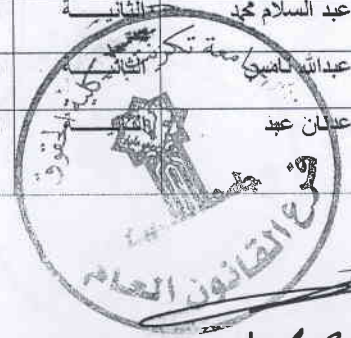 عبد السلام محمد الثانيـــــة
عبدالله ناصر الثانيـــــة
عدنان عبد الثانيـــــة
جامعة تكريت
كلية الحقوق
فرع القانون العام